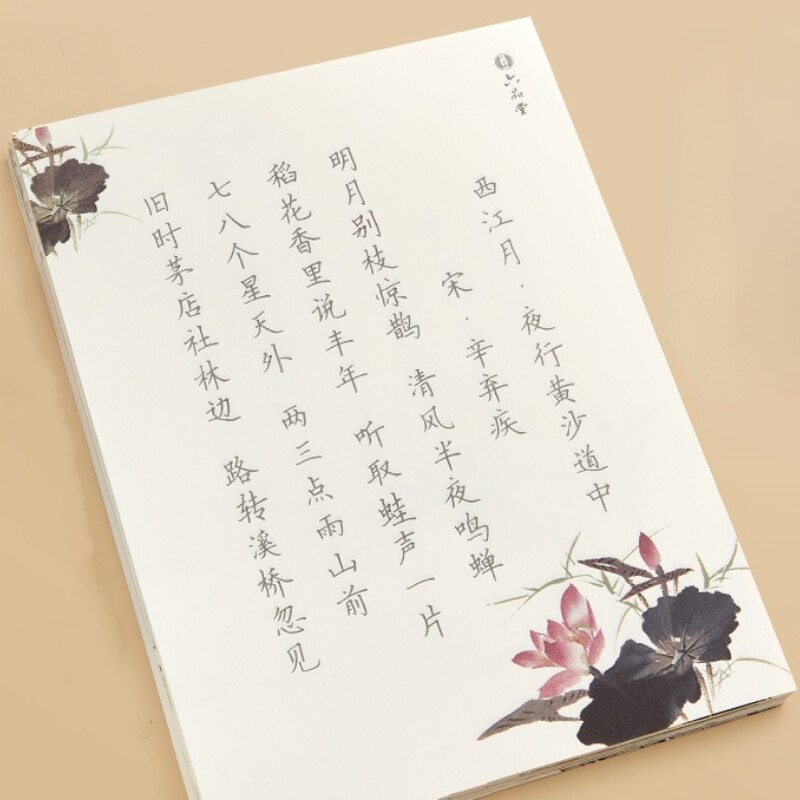 六品堂
西江月·夜行黄沙道中
宋·辛弃疾
明月别枝惊鹊 清风半夜鸣蝉
稻花香里说丰年 听取蛙声一片
七八个星天外 两三点雨山前
旧时茅店社林边 路转溪桥忽见